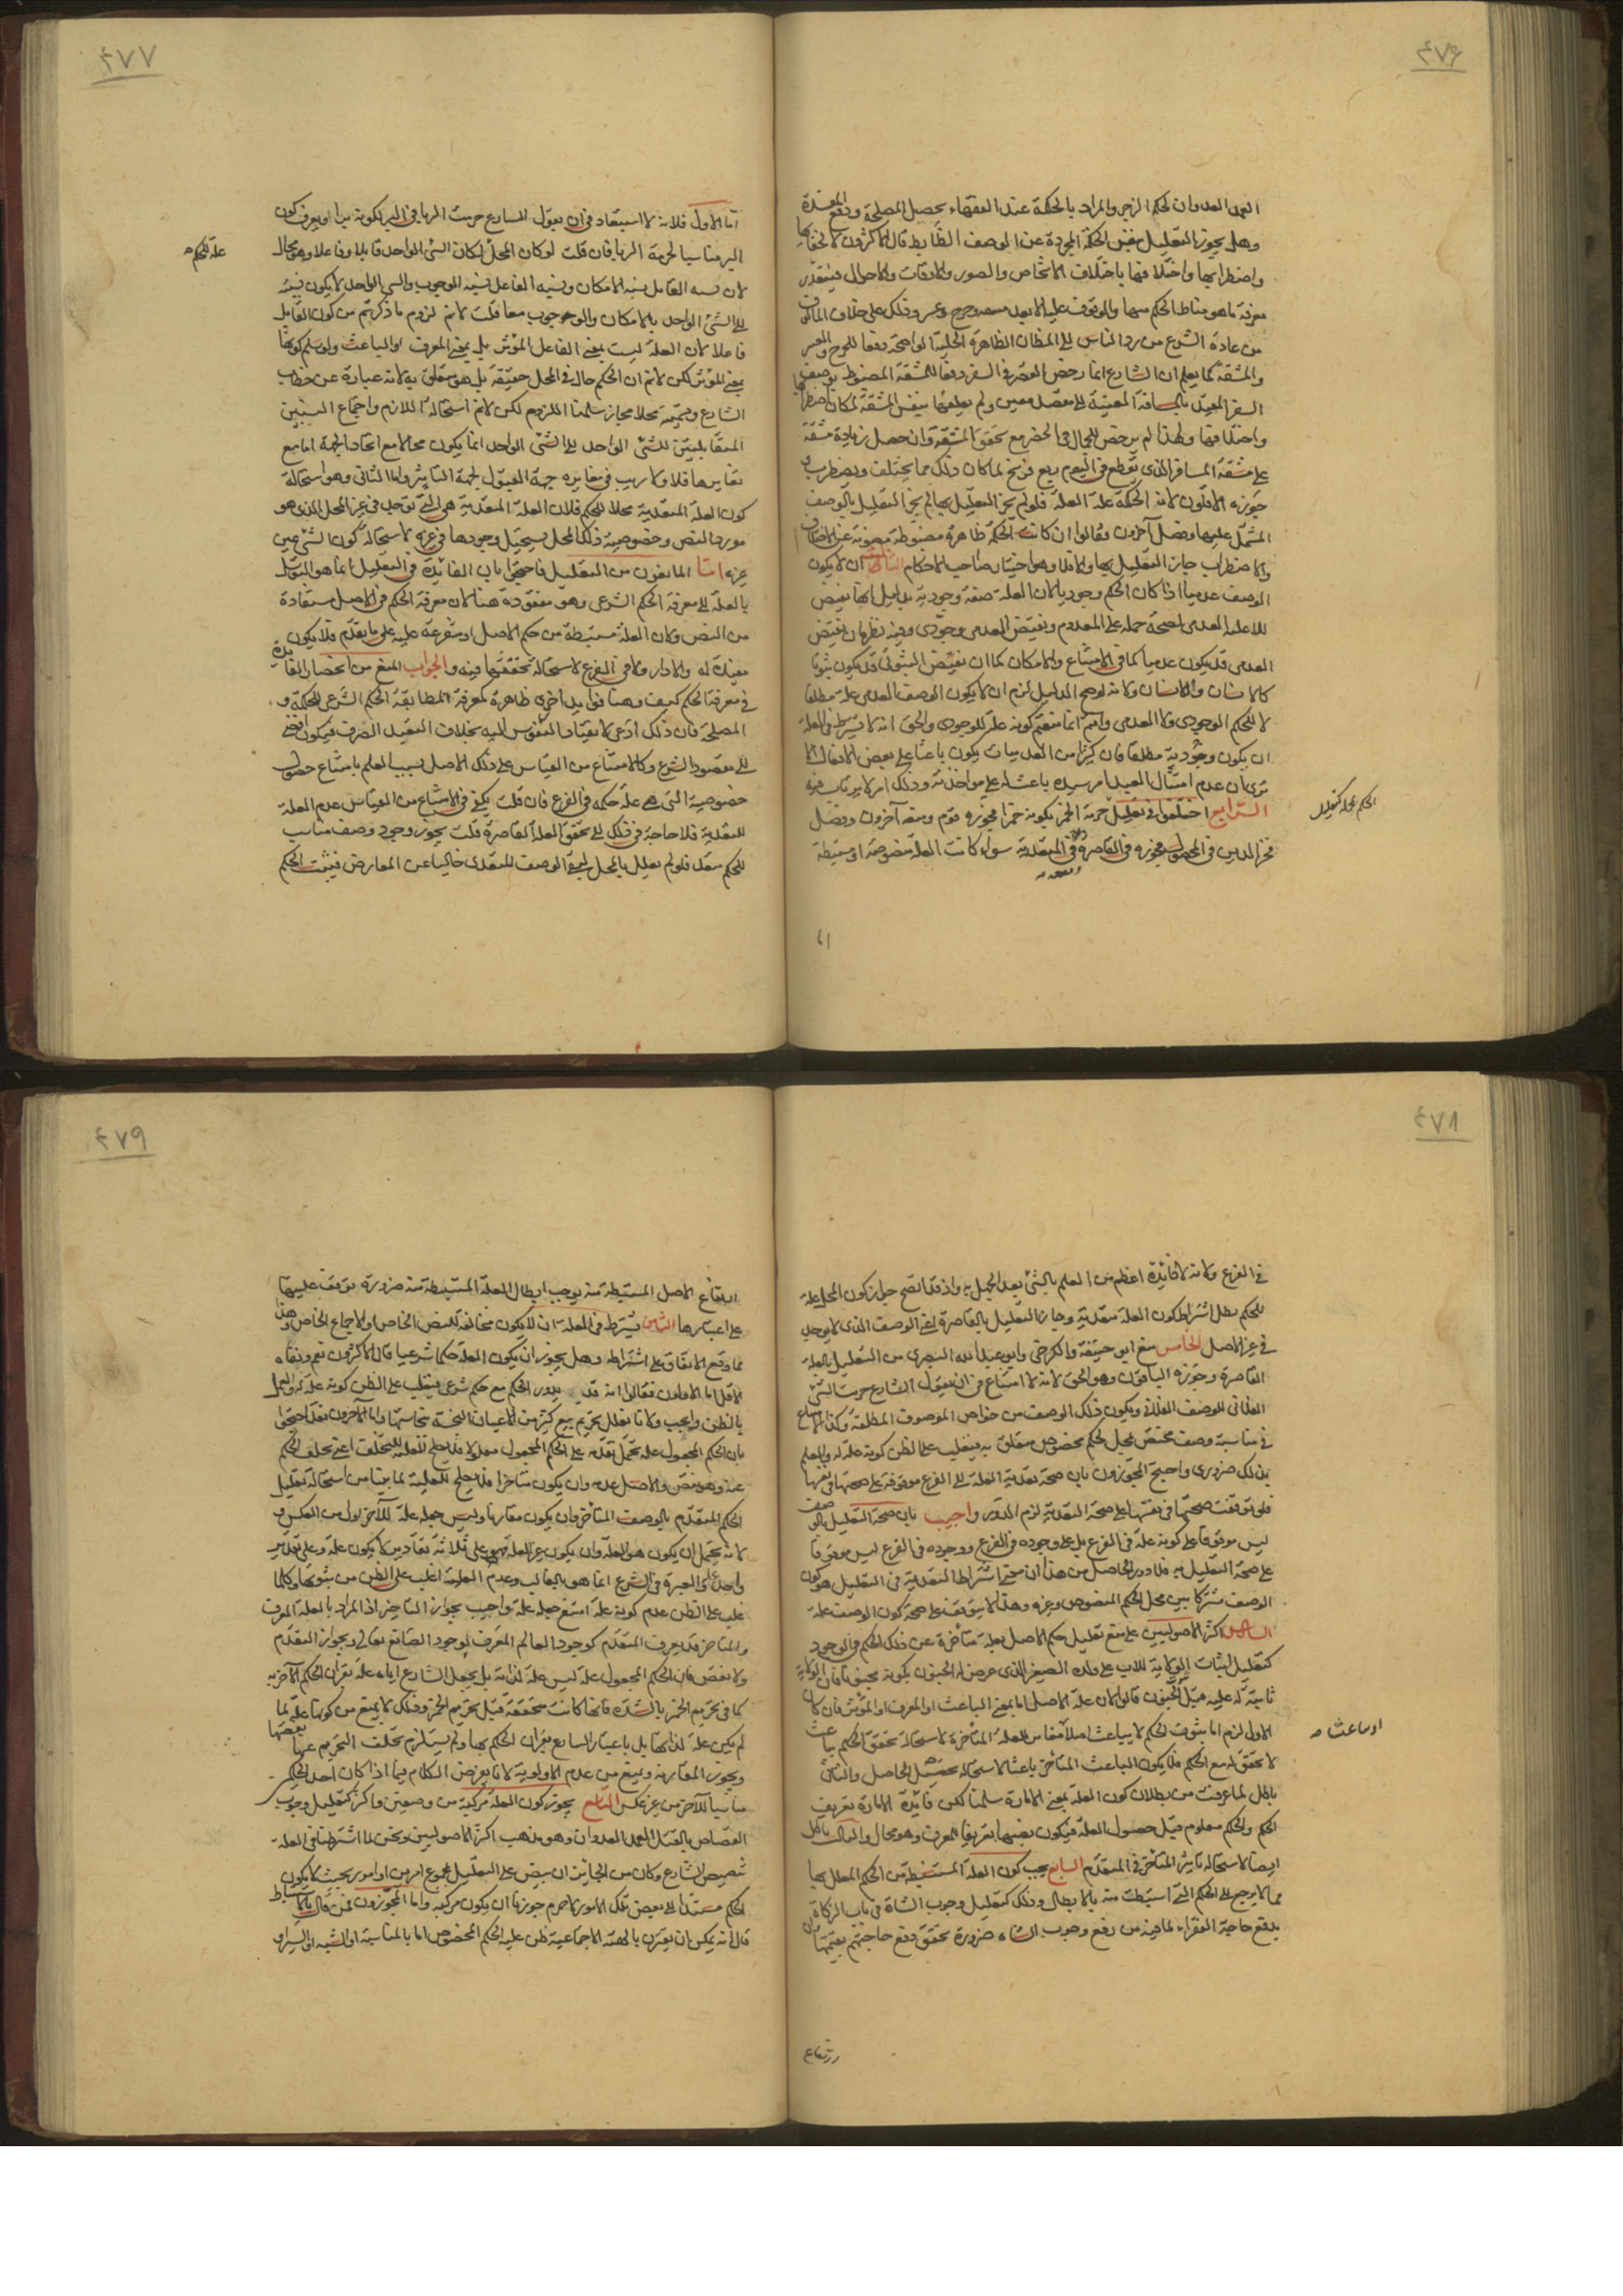 ٤٧٦
العمد العدوان لحكم الزجر والمراد بالحكمة عند الفقهاء تحصيل المصلحة ودفع المفسدة
وهل يجوز التعليل بنفس الحكمة المجردة عن الوصف الضابط قال الأكثرون لا لخفائها
واضطرابها واختلافها باختلاف الاشخاص والصور والاوقات والاحوال فيتعذر
معرفة ما هو مناط الحكم منها والوقوف عليه الا بعد وحرج وعسر وذلك على خلاف المألوف
من عادة الشرع من رد الناس الى المظان الظاهرة الجلية الواضحة دفعا للحرج والعسر
والمشقة كما يعلم ان الشارع انما رخص القصر في السفر دفعا للمشقة المضبوطة
السفر المعين بالمسافة المعينة الى مقصد معين ولم يعلقها بنفس المشقة لمكان اضطرابها
واختلافها ولهذا لم يرخص للحمال في الحضر مع تحقق المشقة وان حصل زيادة مشقة
على مشقة المسافر الذي يقطع في اليوم ربع فرسخ لما كان ذلك مما يختلف ويضطرب و
جوزه الاقلون لان الحكمة علة العلة فلو لم يجز التعليل بها لم يجز التعليل بالوصف
المشتمل عليها وفصل آخرون وقالوا ان كانت الحكمة ظاهرة مضبوطة
والاضطراب جاز التعليل بها والا فلا وهو اختيار صاحب الاحكام الثالث ان لا يكون
الوصف عدميا اذا كان الحكم وجوديا لان العلة صفة وجودية بدليل انها نقيض
للاعلة العدمي لصحة حمله على المعدوم ونقيض العدمي وجودي وفيه نظر فان نقيض
العدمي قد يكون عدميا كما في الامتناع والامكان كما ان نقيض الثبوتي قد يكون ثبوتيا
كالانسان واللاانسان ولانه لو صح الدليل لزم ان لا يكون الوصف العدمي علة مطلقا
لا للحكم الوجودي ولا العدمي وانتم انما منعتم كونه علة للوجودي والحق انه لا يشترط في العلة
ان يكون وجودية مطلقا فان كثيرا من العدميات يكون باعثا على بعض الافعال الا
ترى ان عدم امتثال العبد امر سيده باعث له على مواخذته وذلك امر لا يرتاب فيه
الرابع اختلفوا في تعليل حرمة الخمر بكونه خمرا فجوزه قوم ومنعه آخرون وفصل
فخر الدين في المحصول فجوزه في القاصرة في المتعدية سواء كانت العلة منصوصة او مستنبطة
الحكم بمحله كتعليل
اما
٤٧٧
اما الاول فلانه لا استبعاد في ان يقول الشارع حرمت الربا في البر لكونه برا او يعرف كون
البر مناسبا لحرمة الربا فان قلت لو كان المحل لكان الشئ الواحد قابلا وفاعلا وهو محال
لان نسبة القابل نسبة الامكان ونسبة الفاعل نسبة الوجوب والشئ الواحد لا يكون نسبته
الى الشئ الواحد بالامكان والوجوب معا قلت لا نم لزوم ما ذكرتم من كون القابل
فاعلا لان العلة ليست بمعنى الفاعل المؤثر بل بمعنى المعرف او الباعث ولو سلم كونها
بمعنى المؤثر لكن لا نم ان الحكم حال في المحل حقيقة بل هو متعلق به لانه عبارة عن خطاب
الشارع وتسميته محلا مجاز سلمنا اللزوم لكن لا نم استحالة اللازم واجتماع النسبتين
المتقابلتين للشئ الواحد الى الشئ الواحد انما يكون محالا مع اتحاد الجهة اما مع
تغايرها فلا ولا ريب في مغايرة جهة القبول لجهة التأثير واما الثاني وهو استحالة
كون العلة المتعدية محلا للحكم فلان العلة المتعدية هي التي توجد في غير المحل الذي هو
مورد النص وخصوصية ذلك المحل يستحيل وجودها في غيره لاستحالة كون الشئ عين
غيره اما المانعون من التعليل فاحتجوا بان الفائدة في التعليل انما هو التوسل
بالعلة الى معرفة الحكم الشرعي وهو مفقودة هنا لان معرفة الحكم في الاصل مستفادة
من النص وكان العلة مستنبطة من حكم الاصل او متفرعة عليه على ما تقدم فلا يكون
مفيدة له والا دار ولا في الفرع لاستحالة تحققها فيه والجواب المنع من انحصار الفائدة
في معرفة الحكم كيف وهنا فوايد اخرى ظاهرة كمعرفة المطابقة الحكم الشرعي للحكمة و
المصلحة فان ذلك ادعى لانقياد النفوس اليه بخلاف التعبد الصرف فيكون افضى
الى مقصود الشرع وكالامتناع من القياس على ذلك الاصل بسبب العلم بامتناع حصول
خصوصية التي هي علة حكمه في الفرع فان قلت يكفي في الامتناع من القياس عدم العلة
المتعدية فلا حاجة في ذلك الى تحقق العلة القاصرة قلت يجوز وجود وصف مناسب
للحكم متعد فلو لم يعلل بالمحل لبقي الوصف المتعدي خاليا عن المعارض فيثبت الحكم
علة للحكم
٤٧٨
في الفرع ولانه لا فائدة اعظم من العلم بالشئ بعد الجهل به واذ قد اتضح جواز كون المحل علة
للحكم بطل اشتراط كون العلة متعدية وجاز التعليل بالقاصرة اعني الوصف الذي لا يوجد
في غير الاصل الخامس منع ابو حنيفة والكرخي وابو عبد الله البصري من التعليل بالعلة
القاصرة وجوزه الباقون وهو الحق لانه لا امتناع في ان يقول الشارع حرمت الشئ
الفلاني للوصف الفلاني ويكون ذلك الوصف من خواص الموصوف المطلقة وكذا لا امتناع
في مناسبة وصف مختص بمحل لحكم مخصوص متعلق به فيغلب على الظن كونه علة له والعلم
بذلك ضروري واحتج المجوزون بان صحة تعدية العلة الى الفرع موقوفة على صحتها في نفسها
فلو توقفت صحتها في نفسها على صحة التعدية لزم الدور واجيب بان صحة التعليل بالوصف
ليس موقوفا على كونه علة في الفرع بل على وجوده في الفرع ووجوده في الفرع ليس موقوفا
على صحة التعليل به فلا دور الحاصل من هذا ان معنى اشتراط التعدية في التعليل هو كون
الوصف مشتركا بين محل الحكم المنصوص وغيره وهذا لا يتوقف على صحة كون الوصف علة
السادس اكثر الاصوليين على منع تعليل حكم الاصل بعلة متأخرة عن ذلك الحكم في الوجود
كتعليل اثبات الولاية للاب على ولده الصغير الذي عرض له الجنون بكونه مجنونا فان الولاية
ثابتة له عليه قبل الجنون قالوا لان علة الاصل اما بمعنى الباعث او المعرف او المؤثر فان كان
الاول لزم اما ثبوت الحكم لا بباعث اصلا للعلة المتأخرة لاستحالة تحقق الحكم بباعث
لا تحقق له مع الحكم فلا يكون الباعث المتأخر باعثا لاستحالة تحصيل الحاصل والثاني
باطل لما عرفت من بطلان كون العلة بمعنى الامارة سلمنا لكن فائدة الامارة تعريف
الحكم والحكم معلوم قبل حصول العلة فيكون نصبها تعريفا للمعرف وهو محال والثالث باطل
ايضا لاستحالة تأثير المتأخر في المتقدم السابع يجب كون العلة المستنبطة من الحكم المعلل بها
مما لا يرجع الى الحكم التي استنبطت منه بالابطال وذلك كتعليل وجوب الشاة في باب الزكاة
بدفع حاجة الفقراء لما فيه من رفع وجوب الشاة ضرورة تحقق دفع حاجتهم بقيمتها
او بباعث
ارتفاع
٤٧٩
ارتفاع الاصل المستنبطة منه يوجب ابطال العلة المستنبطة منه ضرورة توقف عليتها
على اعتبارها الثامن يشترط في العلة ان لا يكون مخالفة للنص الخاص والاجماع الخاص وهذا
مما وقع الاتفاق على اشتراطه وهل يجوز ان يكون العلة حكما شرعيا قال الاكثرون نعم ونفاه
الاقل اما الاولون فقالوا انه قد يدور الحكم مع حكم شرعي فيغلب على الظن كونه علة له والعمل
بالظن واجب ولانا نعلل تحريم بيع كثير من الاعيان النجسة بنجاستها واما الآخرون فقد احتجوا
بان الحكم المجعول علة يحتمل تقدمه على الحكم المجعول معلولا فلا يصلح للعلة للتخلف اعني تخلف الحكم
عنه وهو نقض والاصل عدمه وان يكون متأخرا فلا يصلح للعلية لما بينا من استحالة تعليل
الحكم المتقدم بالوصف المتأخر وان يكون مقارنا وليس جعله علة للآخر اولى من العكس و
لانه يحتمل ان يكون هو العلة وان يكون غير العلة فهو على ثلاثة تقادير لا يكون علة وعلى تقدير
واحد علة والعبرة في الشرع انما هو بالغالب وعدم العلية اغلب على الظن من ثبوتها وكلما
غلب على الظن عدم كونه علة امتنع جعله علة واجيب بجواز التأخير اذ المراد بالعلة المعرف
والمتأخر قد يعرف المتقدم كوجود العالم المعرف لوجود الصانع تعالى وبجواز التقدم
ولا نقض فان الحكم المجعول علة ليس علة لذاته بل بجعل الشارع اياه علة بقران الحكم الآخر به
كما في تحريم الخمر بالشدة فانها كانت متحققة قبل تحريم الخمر وذلك لا يمنع من كونها علة لما
لم يكن علة لذاتها بل باعتبار الشارع بقران الحكم بها ولم يستلزم تخلف التحريم عنها نقضها
وبجواز المقارنة ونمنع من عدم الاولوية لانا نفرض الكلام فيما اذا كان احد الحكمين
مناسبا للآخر من غير عكس التاسع يجوز كون العلة مركبة من وصفين فاكثر كتعليل وجوب
القصاص بالقتل العمد العدوان وهو مذهب اكثر الاصوليين ونحن لما اشترطنا في العلة
تنصيص الشارع وكان من الجائز ان ينص على التعليل بمجموع امرين او امور بحيث لا يكون
الحكم مستندا الى بعض تلك الامور لا جرم جوزنا ان يكون مركبة واما المجوزون فمن قال بالاستنباط
قال انه يمكن ان يقترن بالهيئة الاجتماعية ظن علية الحكم المخصوص اما بالمناسبة او الشبه او السبر او